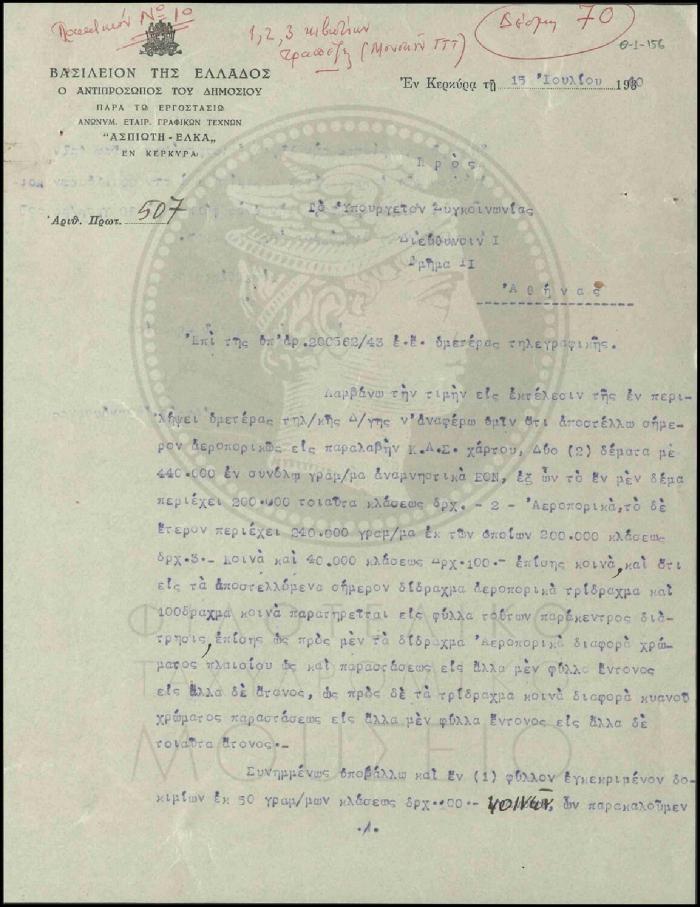 Πρακτικόν Νο 10
1, 2, 3 κιβωτίων
Τραπέζης (Μουσεῖον ΤΤΤ)
Δέσμη 70
Θ-Ι-156
ΒΑΣΙΛΕΙΟΝ ΤΗΣ ΕΛΛΑΔΟΣ
Ο ΑΝΤΙΠΡΟΣΩΠΟΣ ΤΟΥ ΔΗΜΟΣΙΟΥ
ΠΑΡΑ ΤΩ ΕΡΓΟΣΤΑΣΙΩ
ΑΝΩΝΥΜ. ΕΤΑΙΡ. ΓΡΑΦΙΚΩΝ ΤΕΧΝΩΝ
"ΑΣΠΙΩΤΗ - ΕΛΚΑ"
ΕΝ ΚΕΡΚΥΡΑ
Ἐν Κερκύρᾳ τῇ 15 Ἰουλίου 1940
Ἀριθ. Πρωτ. 507
Πρὸς
Τὸ Ὑπουργεῖον Συγκοινωνίας
Διεύθυνσιν Ι
Τμῆμα ΙΙ
Ἀθήνας
Ἐπὶ τῆς ὑπ'ἀρ. 200562/43 ἐ.ἔ. ὑμετέρας τηλεγραφικῆς.
Λαμβάνω τὴν τιμὴν εἰς ἐκτέλεσιν τῆς ἐν περι-
λήψει ὑμετέρας τηλ/κῆς Δ/γῆς ν'ἀναφέρω ὑμῖν ὅτι ἀποστέλλω σήμε-
ρον ἀεροπορικῶς εἰς παραλαβὴν Κ.Δ.Σ. χάρτου, Δύο (2) δέματα μὲ
440.000 ἐν συνόλῳ γραμ/μα ἀναμνηστικὰ ΕΟΝ, ἐξ ὧν τὸ ἓν μὲν δέμα
περιέχει 200.000 τοιαῦτα κλάσεως δρχ. - 2 - Ἀεροπορικὰ, τὸ δὲ
ἕτερον περιέχει 240.000 γραμ/μα ἐκ τῶν ὁποίων 200.000 κλάσεως
δρχ.3.- Κοινὰ καὶ 40.000 κλάσεως Δρχ.100.- ἐπίσης κοινὰ, καὶ ὅτι
εἰς τὰ ἀποστελλόμενα σήμερον δίδραχμα ἀεροπορικὰ τρίδραχμα καὶ
100δραχμα κοινὰ παρατηρεῖται εἰς φύλλα τούτων παράκεντρος διά-
τρησις, ἐπίσης ὡς πρὸς μὲν τὰ δίδραχμα Ἀεροπορικὰ διαφορὰ χρώ-
ματος πλαισίου ὡς καὶ παραστάσεως εἰς ἄλλα μὲν φύλλα ἔντονος
εἰς ἄλλα δὲ ἄτονος, ὡς πρὸς δὲ τὰ τρίδραχμα κοινὰ διαφορὰ κυανοῦ
χρώματος παραστάσεως εἰς ἄλλα μὲν φύλλα ἔντονος εἰς ἄλλα δὲ
τοιαῦτα ἄτονος.-
Συνημμένως ὑποβάλλω καὶ ἓν (1) φύλλον ἐγκεκριμένον δο-
κιμίων ἐκ 50 γραμ/μων κλάσεως δρχ. κοινῶν, ὧν παρακαλοῦμεν
./.
ΦΙΛΟΤΕΛΙΚΟ
ΤΑΧΥΔΡΟΜΙΚΟ
ΜΟΥΣΕΙΟ